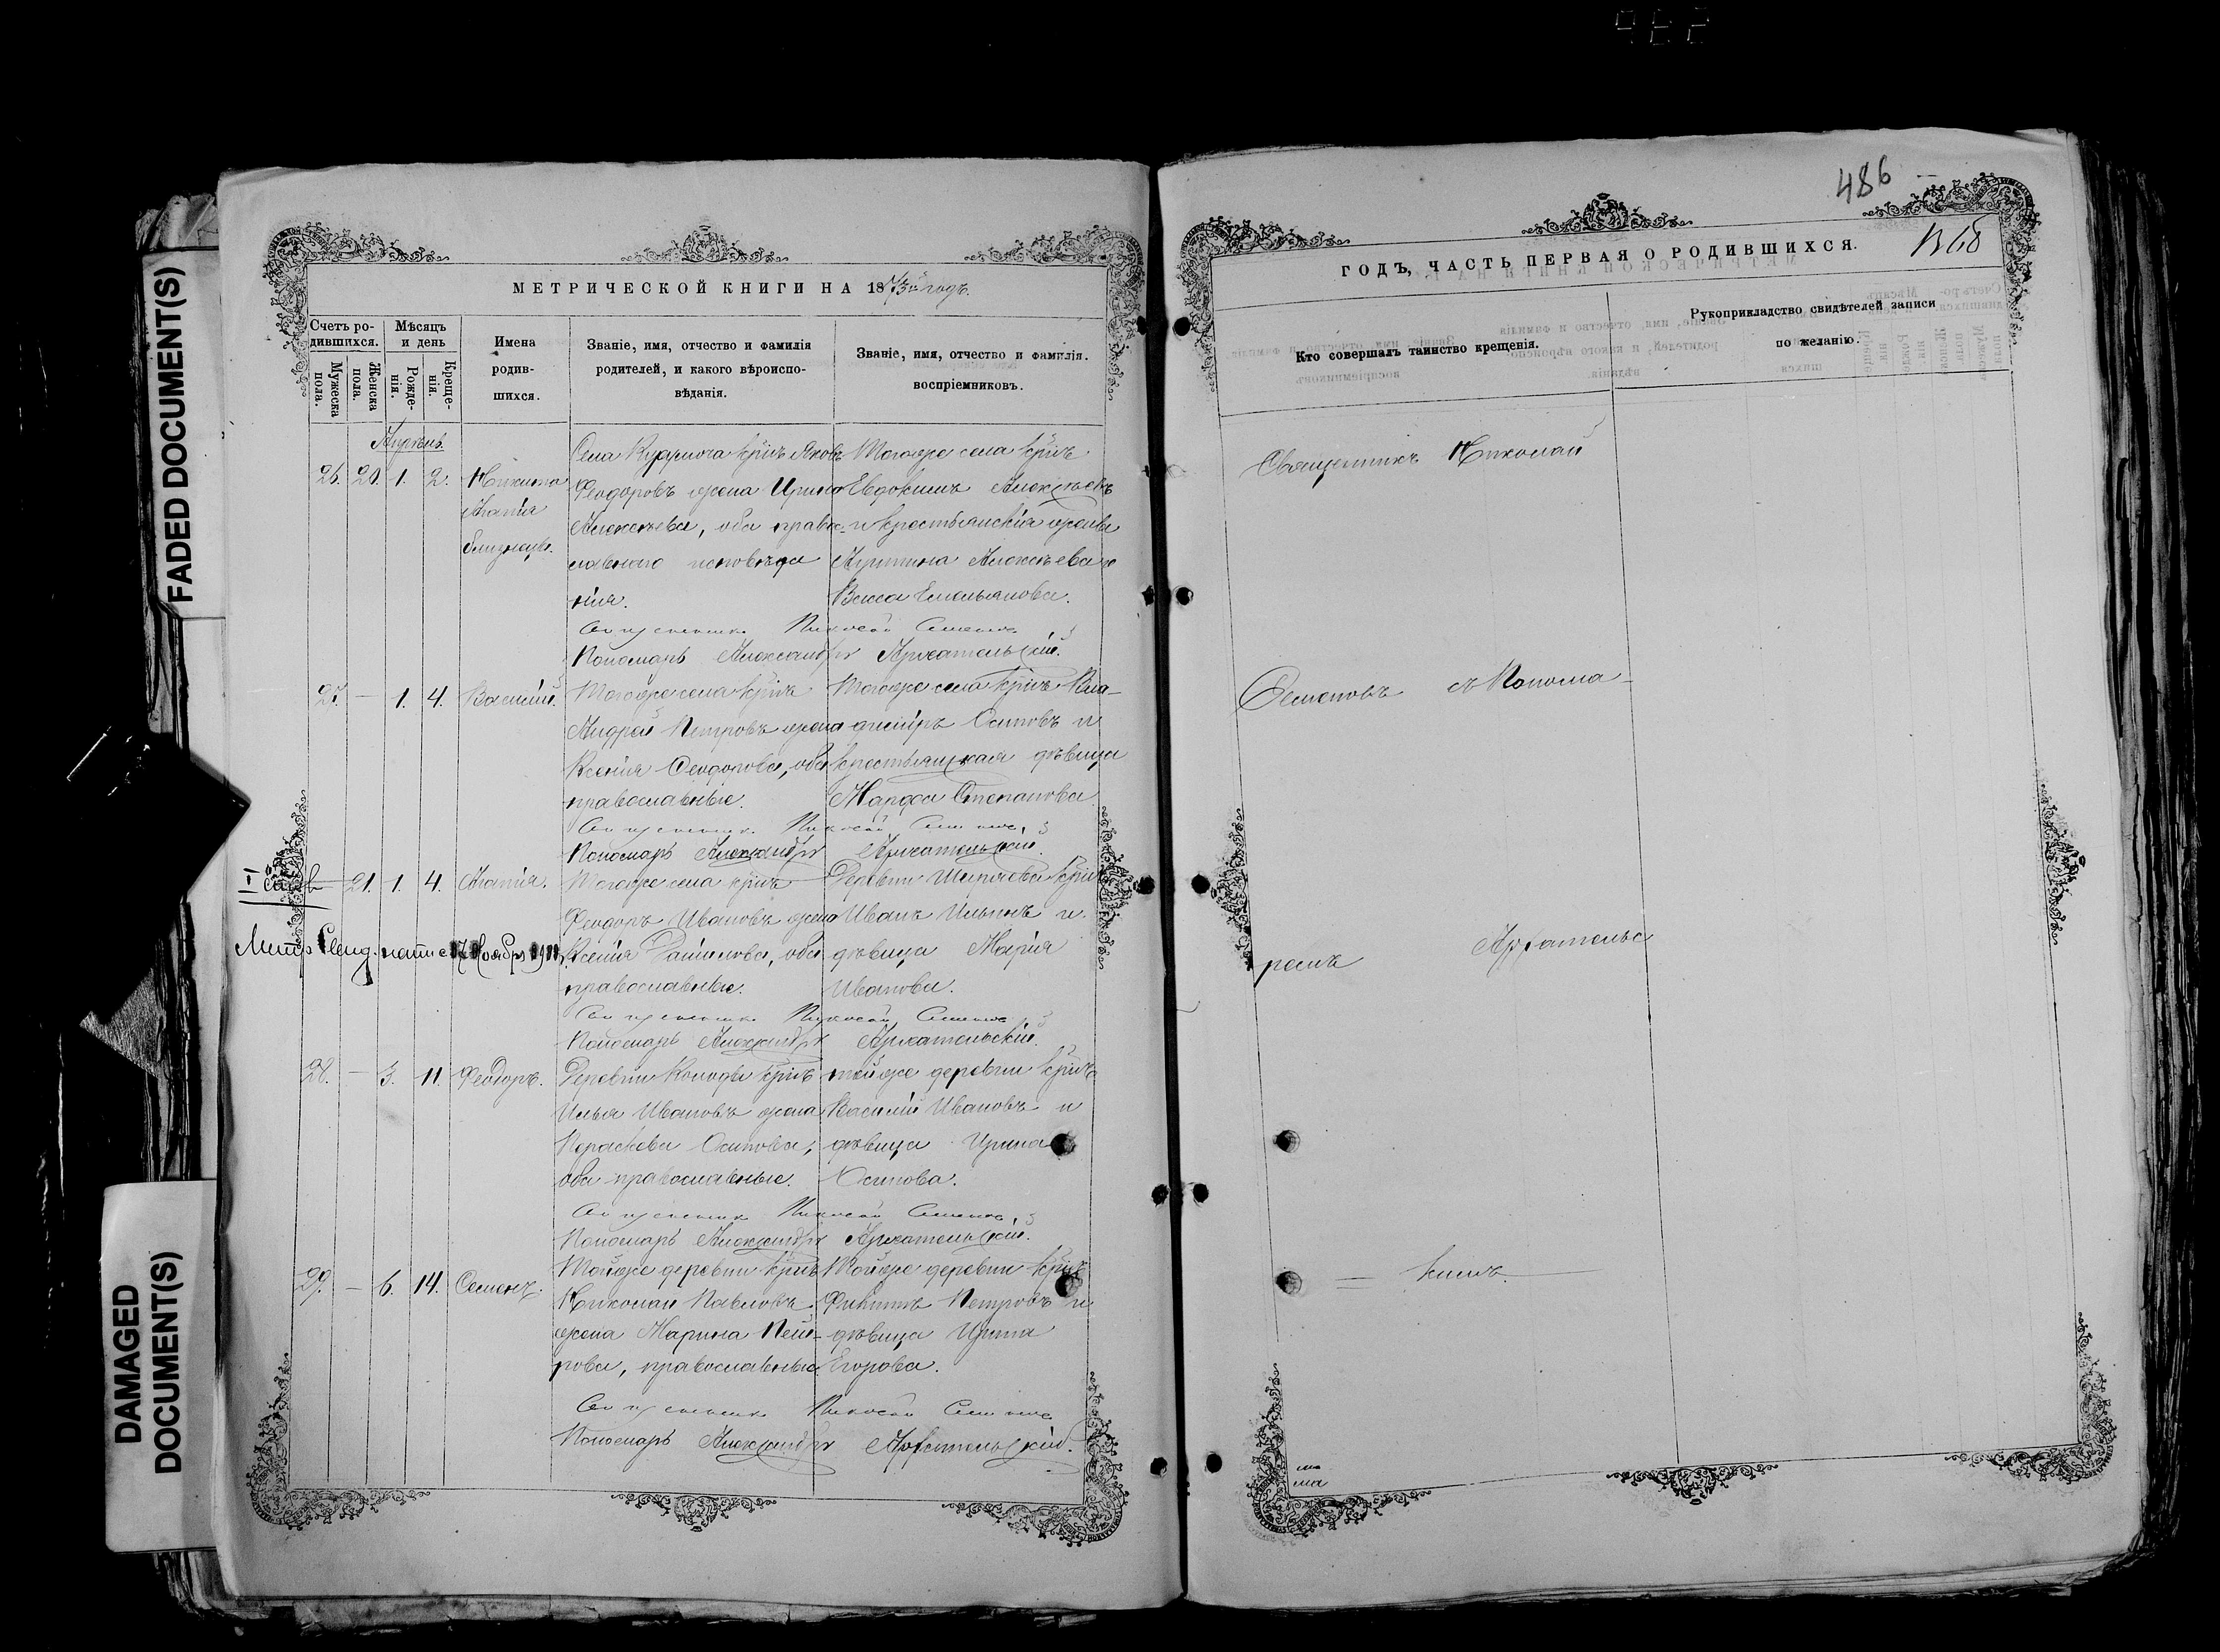 486
FADED DOCUMENT(S)
DAMAGED
DOCUMENT(S)
МЕТРИЧЕСКОЙ КНИГИ НА 1873й годъ.
Счетъ ро-
дившихся.
Мужеска
пола.
Женска
пола.
Мѣсяцъ
и день
Рожде-
нія.
Креще-
нія.
Имена
родив-
шихся.
Званіе, имя, отчество и фамилія
родителей, и какого вѣроиспо-
вѣданія.
Званіе, имя, отчество и фамилія.
воспріемниковъ.
Апрѣль.
26. 20. 1. 2.
Никита
Агапія
близнецы.
Села
Феодоровъ жена Ирина
Алексѣева, оба правос-
лавнаго исповѣда
нія.
Тогоже села крнъ
Евдокимъ Алексѣевъ
и крестьянскія жены
Алексѣева и
Васса Емельянова.
Священникъ Николай Семеновъ
Пономарь Александръ Архательскій.
27. — 1. 4.
Василій.
Тогоже села крнъ
Андрей Петровъ жена
Ксенія Феодорова, оба
православные.
Тогоже села крнъ Вла-
димiръ Осиповъ и
крестьянская дѣвица
Марфа Степанова
Священникъ Николай Семеновъ
Пономарь Александръ Архательскій.
21. 1. 4.
Агапія.
Тогоже села крнъ
Феодоръ Ивановъ жена
Ксенія Данилова, оба
православные.
Деревни крнъ
Иванъ Ильинъ и
дѣвица Марія
Иванова.
Священникъ Николай Семеновъ
Пономарь Александръ Архательскій.
28. — 3. 11.
Феодоръ.
Деревни Колоды крнъ
Илья Ивановъ жена
Параскева Осипова,
оба православные.
тойже деревни крнъ
Василій Ивановъ и
дѣвица Ирина
Осипова.
Священникъ Николай Семеновъ
Пономарь Александръ Архательскій.
29. — 6. 14.
Семенъ.
Тойже деревни крнъ
Николай Павловъ
жена Марина Пет-
рова, православные.
Тойже деревни крнъ
Филиппъ Петровъ и
дѣвица Ирина
Егорова.
Священникъ Николай Семеновъ
Пономарь Александръ Архательскій.
ГОДЪ, ЧАСТЬ ПЕРВАЯ О РОДИВШИХСЯ.
Кто совершалъ таинство крещенія.
Рукоприкладство свидѣтелей записи
по желанію.
Священникъ Николай
Семеновъ съ Понома-
ремъ Архательс
кимъ.